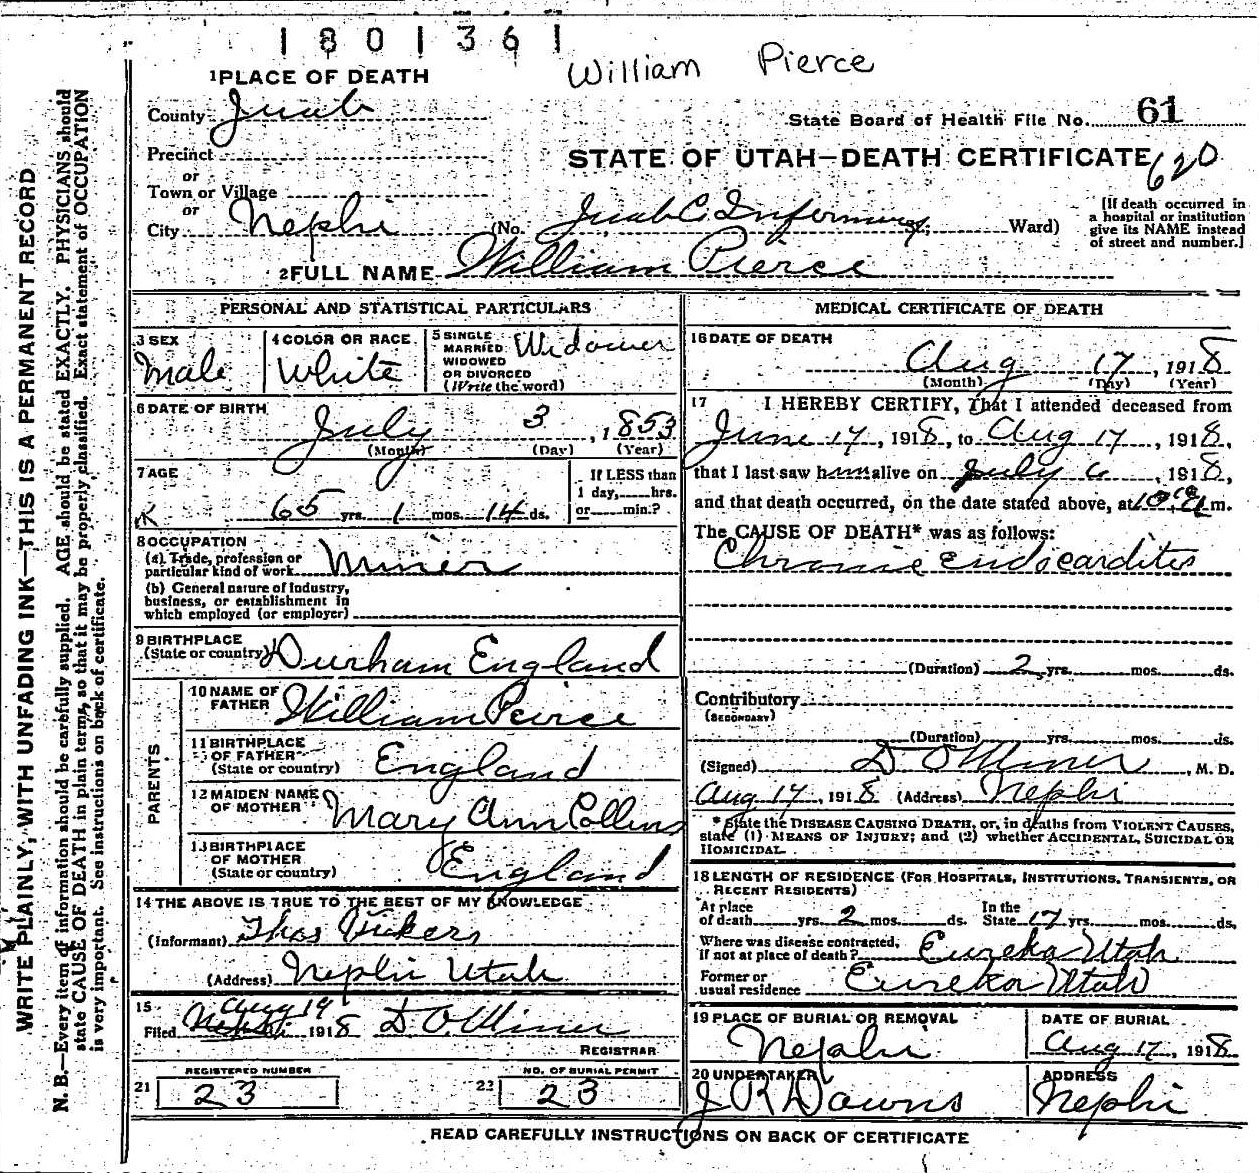 1801361
William Pierce
1 PLACE OF DEATH
County Juab
State Board of Health File No. 61
Precinct
or
STATE OF UTAH—DEATH CERTIFICATE 620
Town or Village
or
City Nephi (No. Juab C. Infirmary St.; Ward)
[If death occurred in
a hospital or institution
give its NAME instead
of street and number.]
2 FULL NAME William Pierce
WRITE PLAINLY, WITH UNFADING INK—THIS IS A PERMANENT RECORD
N. B.—Every item of information should be carefully supplied. AGE should be stated EXACTLY. PHYSICIANS should
state CAUSE OF DEATH in plain terms, so that it may be properly classified. Exact statement of OCCUPATION
is very important. See instructions on back of certificate.
PERSONAL AND STATISTICAL PARTICULARS
3 SEX
Male
4 COLOR OR RACE
White
5 SINGLE
MARRIED
WIDOWED
OR DIVORCED
(Write the word)
Widower
6 DATE OF BIRTH
July 3, 1853
(Month) (Day) (Year)
7 AGE
65 yrs. 1 mos. 14 ds.
If LESS than
1 day, hrs.
or min.?
8 OCCUPATION
(a) Trade, profession or
particular kind of work Miner
(b) General nature of industry,
business, or establishment in
which employed (or employer)
9 BIRTHPLACE
(State or country) Durham England
PARENTS
10 NAME OF
FATHER William Peirce
11 BIRTHPLACE
OF FATHER
(State or country) England
12 MAIDEN NAME
OF MOTHER Mary Ann Collins
13 BIRTHPLACE
OF MOTHER
(State or country) England
14 THE ABOVE IS TRUE TO THE BEST OF MY KNOWLEDGE
(Informant) Thos Vickers
(Address) Nephi Utah
15
Aug 19
Filed Nephi 1918 D. O. Miner
REGISTRAR
21 REGISTERED NUMBER
23
22 NO. OF BURIAL PERMIT
23
MEDICAL CERTIFICATE OF DEATH
16 DATE OF DEATH
Aug 17, 1918
(Month) (Day) (Year)
17 I HEREBY CERTIFY, That I attended deceased from
June 17, 1918, to Aug 17, 1918,
that I last saw him alive on July 6, 1918,
and that death occurred, on the date stated above, at 10 m.
The CAUSE OF DEATH* was as follows:
Chronic Endocarditis
(Duration) 2 yrs. mos. ds.
Contributory
(SECONDARY)
(Duration) yrs. mos. ds.
(Signed) D O Miner, M. D.
Aug 17, 1918 (Address) Nephi
* State the DISEASE CAUSING DEATH, or, in deaths from VIOLENT CAUSES,
state (1) MEANS OF INJURY; and (2) whether ACCIDENTAL, SUICIDAL OR
HOMICIDAL.
18 LENGTH OF RESIDENCE (FOR HOSPITALS, INSTITUTIONS, TRANSIENTS, OR
RECENT RESIDENTS)
At place
of death yrs. 2 mos. ds. In the
State 17 yrs. mos. ds.
Where was disease contracted,
if not at place of death? Eureka Utah
Former or
usual residence Eureka Utah
19 PLACE OF BURIAL OR REMOVAL
Nephi
DATE OF BURIAL
Aug 17, 1918
20 UNDERTAKER
J R Downs
ADDRESS
Nephi
READ CAREFULLY INSTRUCTIONS ON BACK OF CERTIFICATE